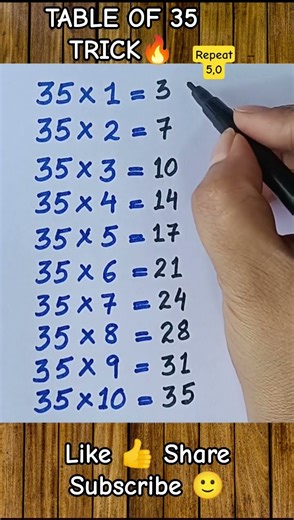 TABLE OF 35
TRICK🔥
Repeat
5,0
35 × 1 = 3
35 × 2 = 7
35 × 3 = 10
35 × 4 = 14
35 × 5 = 17
35 × 6 = 21
35 × 7 = 24
35 × 8 = 28
35 × 9 = 31
35 × 10 = 35
Like 👍 Share
Subscribe 🙂